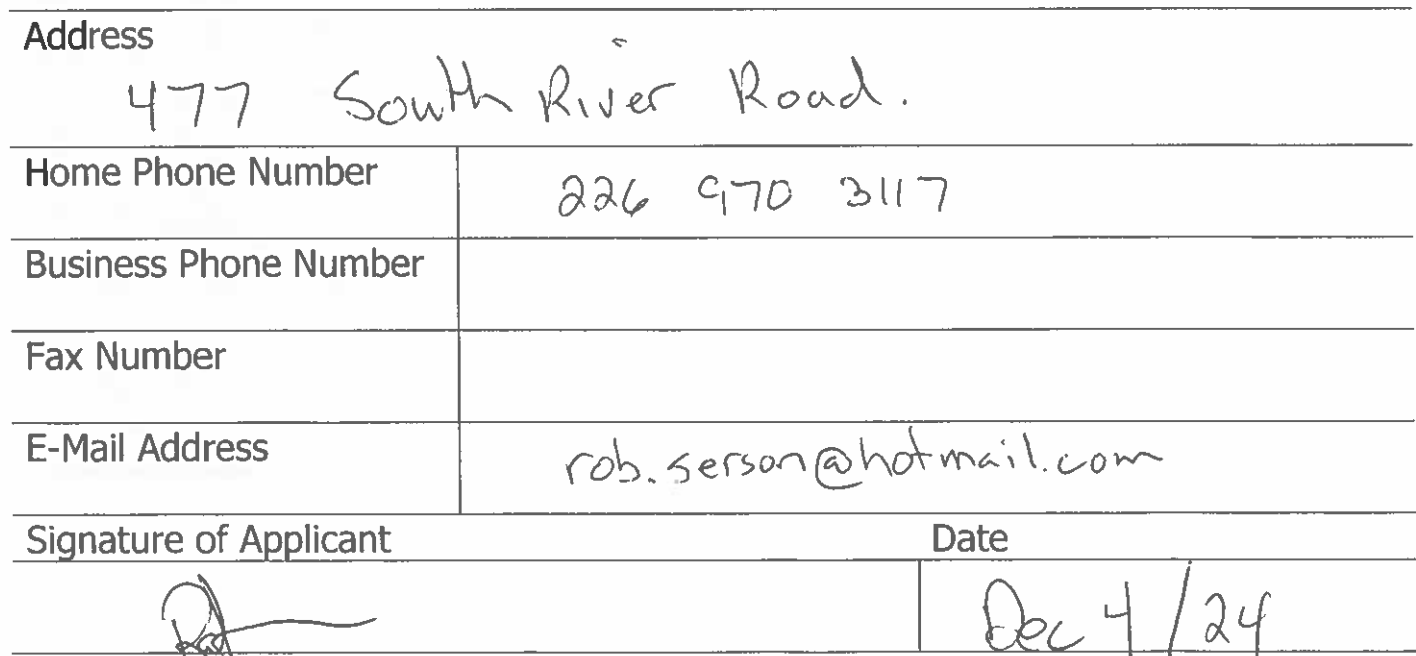 Address
477 South River Road.
Home Phone Number 226 970 3117
Business Phone Number
Fax Number
E-Mail Address rob.serson@hotmail.com
Signature of Applicant Date
Dec 4/24